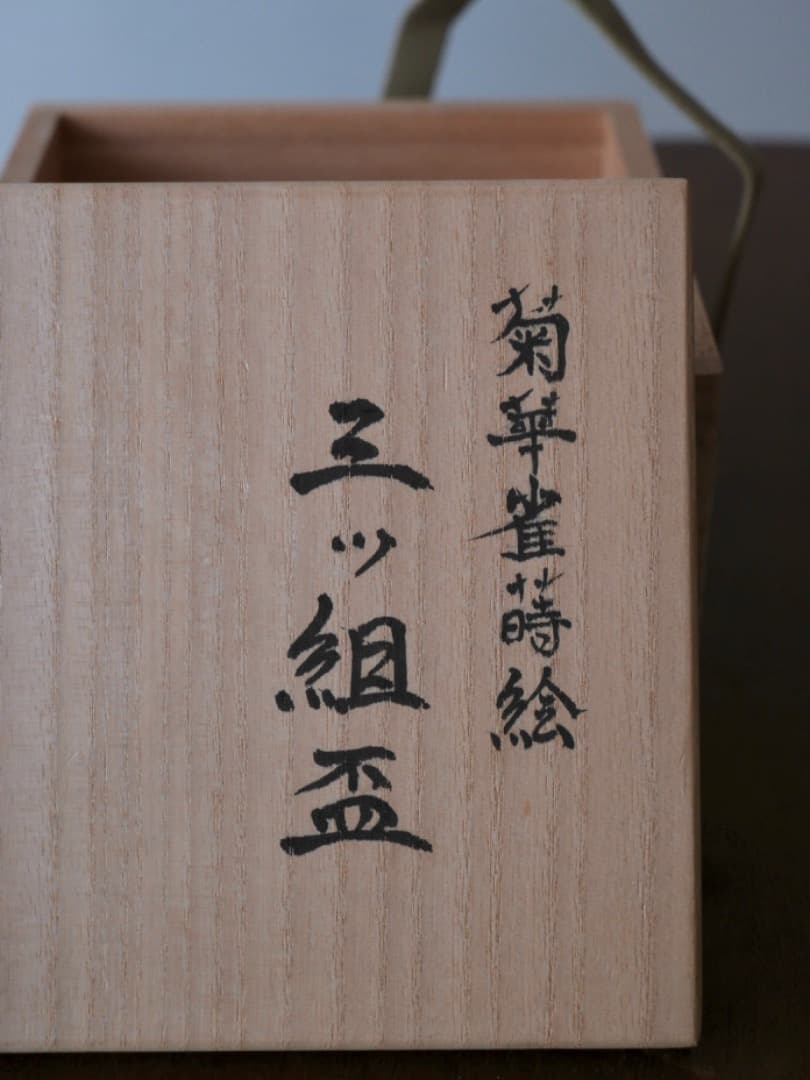 菊華雀蒔絵
三ッ組盃